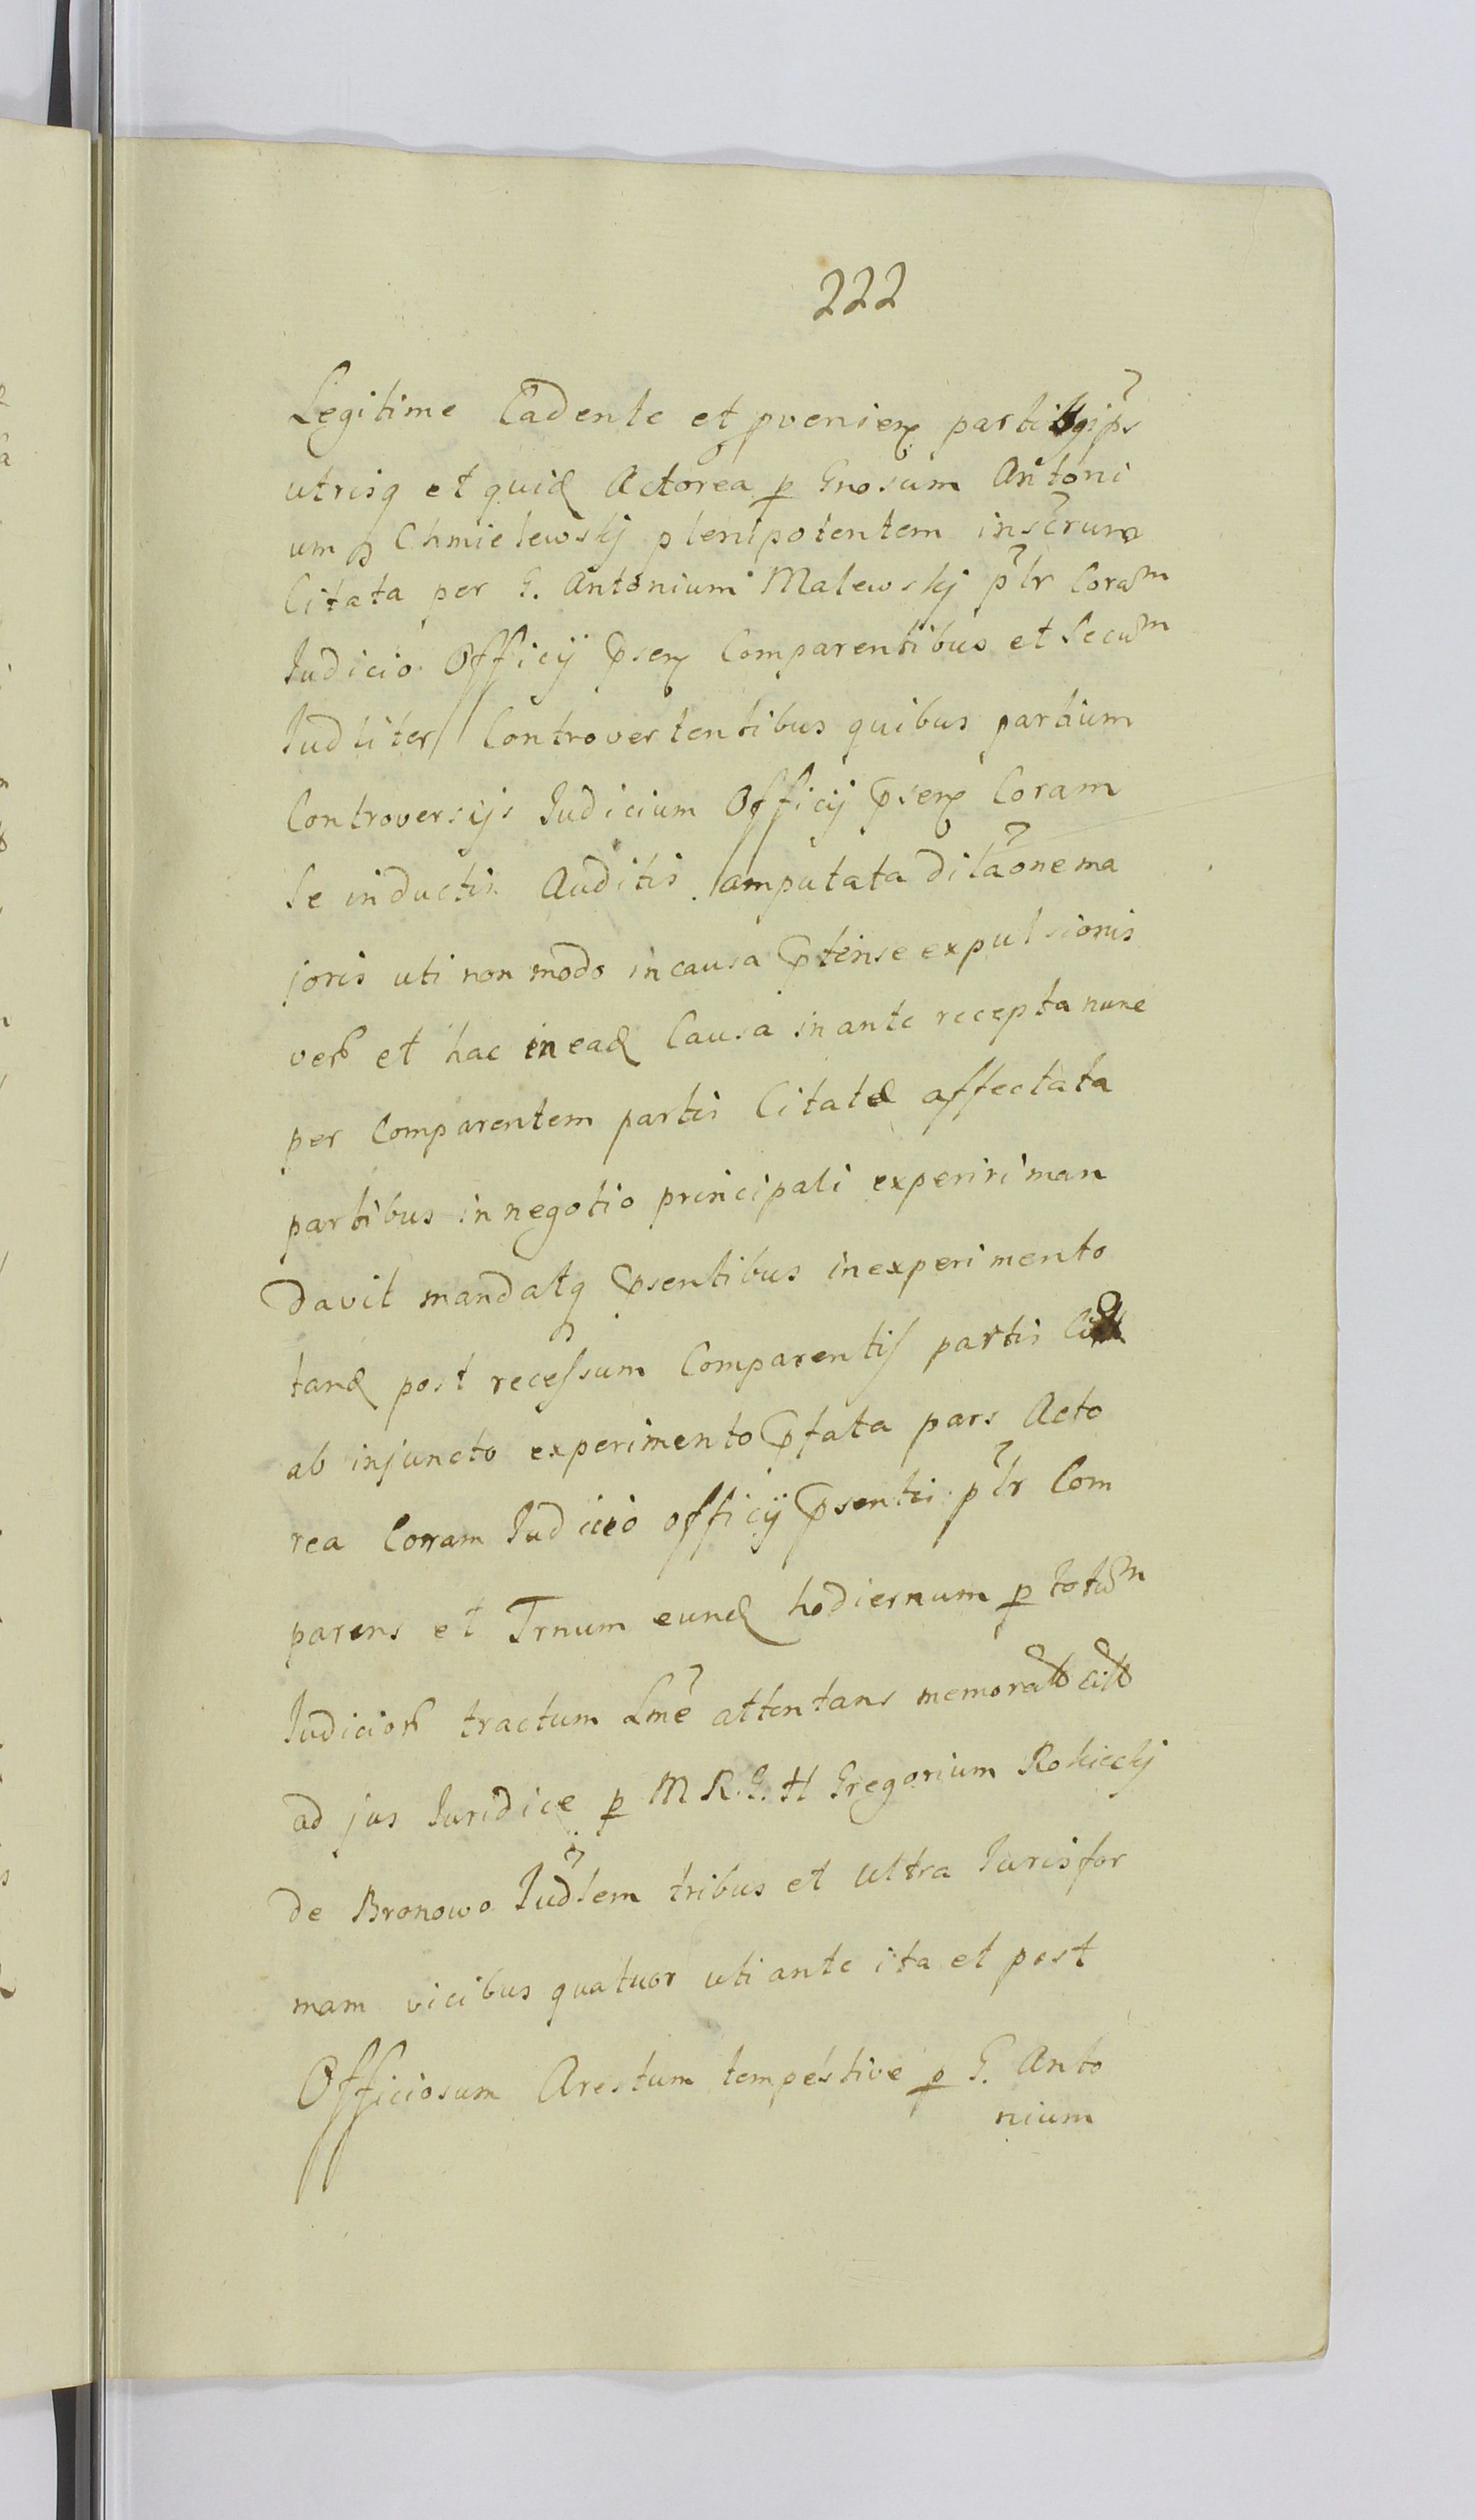 222
Legitime Cadente et pvenien partibg ips
utrisq et quid Actorea p Gnosum Antoni
um Chmielewskj plenipotentem
Citata per G. Antonium Malewskj plr Coram
Judicio Officÿ psen Comparentibus et Secum
Judliter Controvertentibus quibus partium
Controversijs Judicium Officij psen Coram
Se inductis Auditis amputata dilaone ma
joris uti non modo in causa ptense expulsionis
vero et hac in ead Causa in ante recepta nunc
per Comparentem partis Citatæ affectata
partibus in negotio principali experiri man
davit mandatq psentibus in experimento
tand post recessum Comparentis partis
ab injuncto experimento pfata pars Acto
rea Coram Judicio officÿ psenti plr Com
parens et Trnum eund hodiernum p totum
Judicior tractum Lme attentans memorat cit
ad jus Juridice p M R. G. H Gregorium Rokickj
de Bronowo Judlem tribus et ultra Juris for
mam vicibus quatuor uti ante ita et post
Officiosum Arestum tempestive p G. Anto
nium